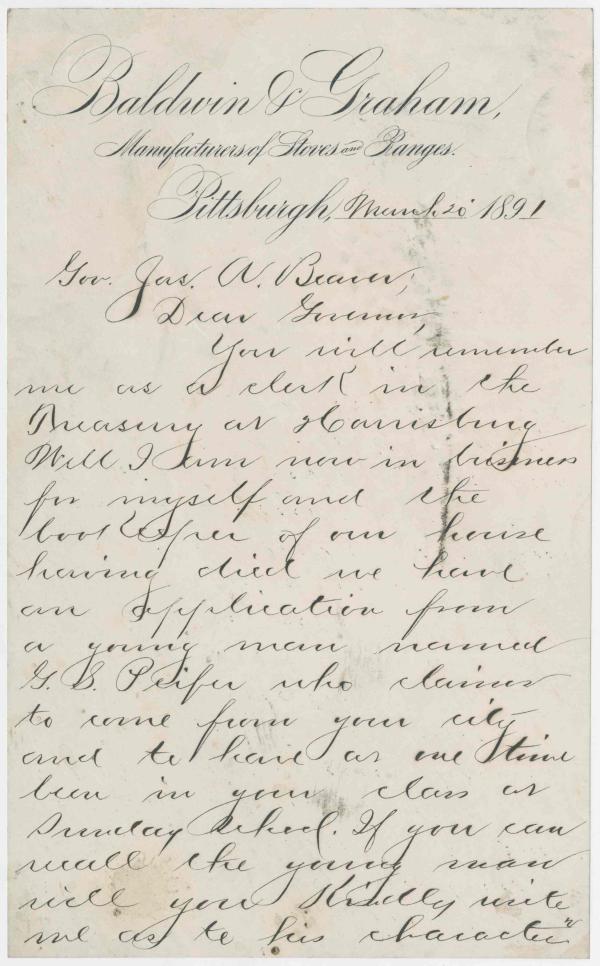 Baldwin & Graham,
Manufacturers of Stoves and Ranges.
Pittsburgh, March 20 1891
Gov. Jas. A. Beaver,
Dear Governor,
You will remember
me as a clerk in the
Treasury at Harrisburg
Well I am now in business
for myself and the
book keeper of our house
having died we have
an application from
a young man named
G. S. Peifer who claims
to come from your city
and to have at one time
been in your class at
Sunday School. If you can
recall the young man
will you kindly write
me as to his character